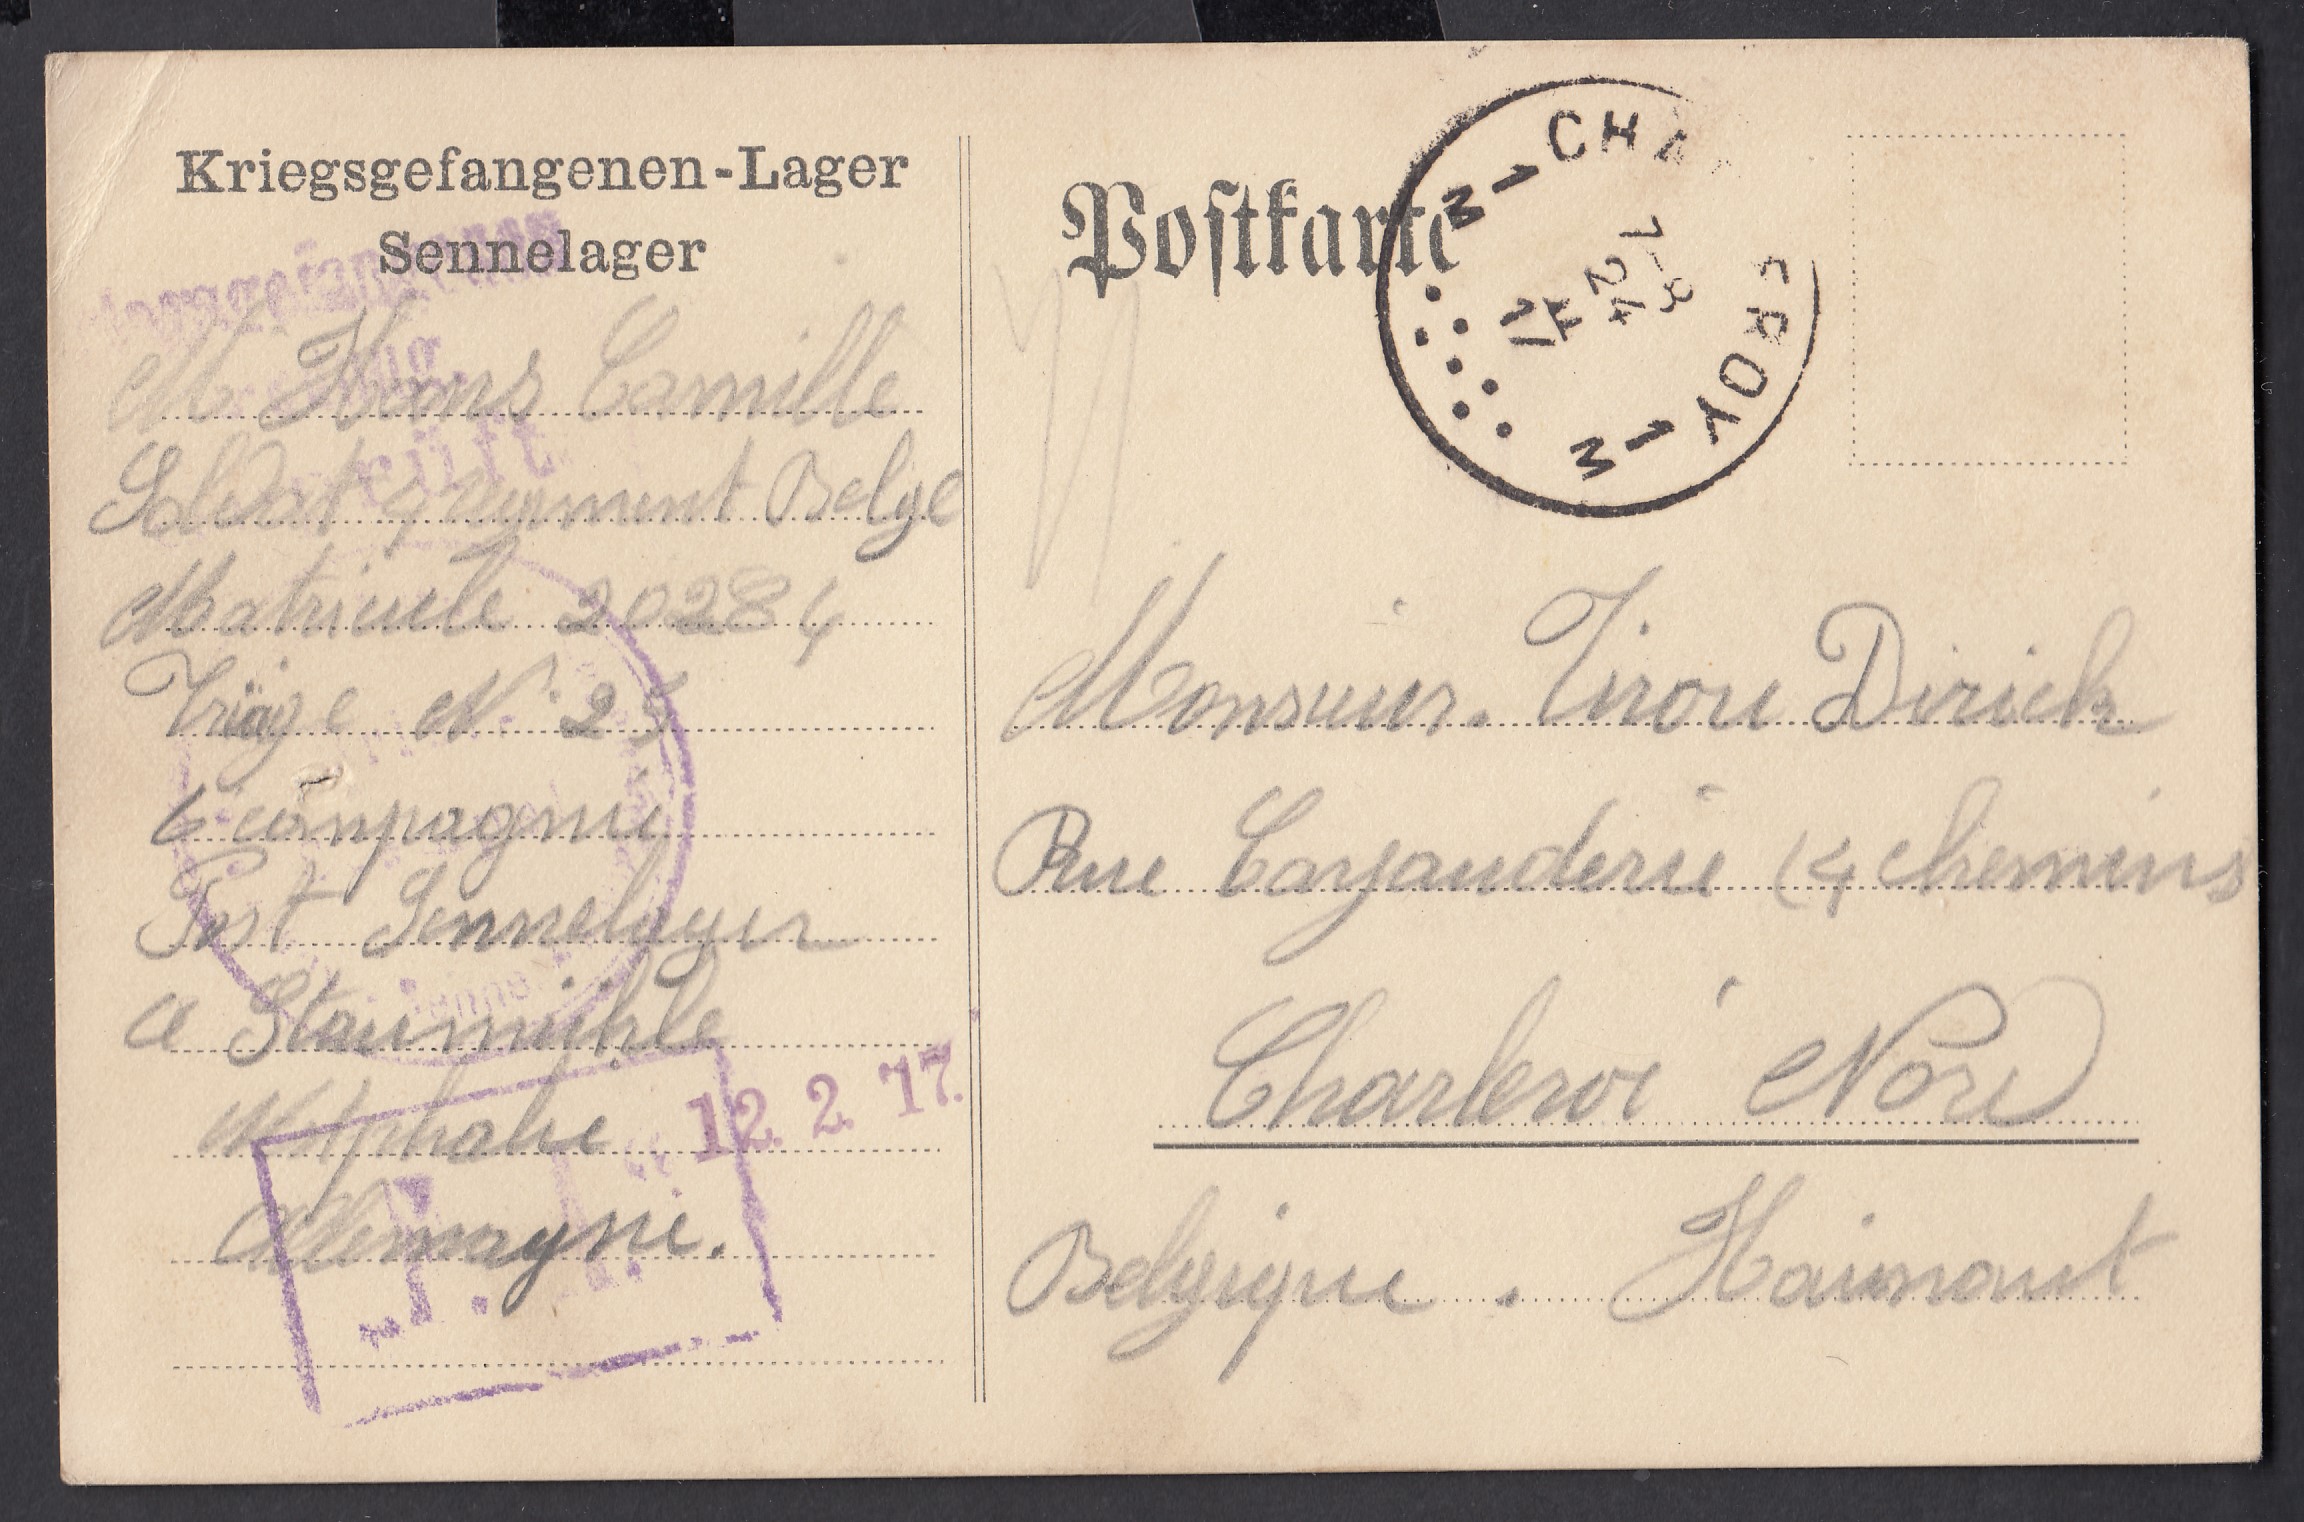 Kriegsgefangenen-Lager
Sennelager
M Hans Camille
Soldat regiment Belge
Matricule 20284
N° 25
6 compagnie
Post Sennelager
a Staumühle
Westphalie
Allemagne.
12. 2. 17.
Postkarte
CHA EROY
1 M
7-8
24
II
17
1 M
Monsieur. Tirou Dirick
Rue Cayauderie (4 chemins
Charleroi Nord
Belgique. Hainaut